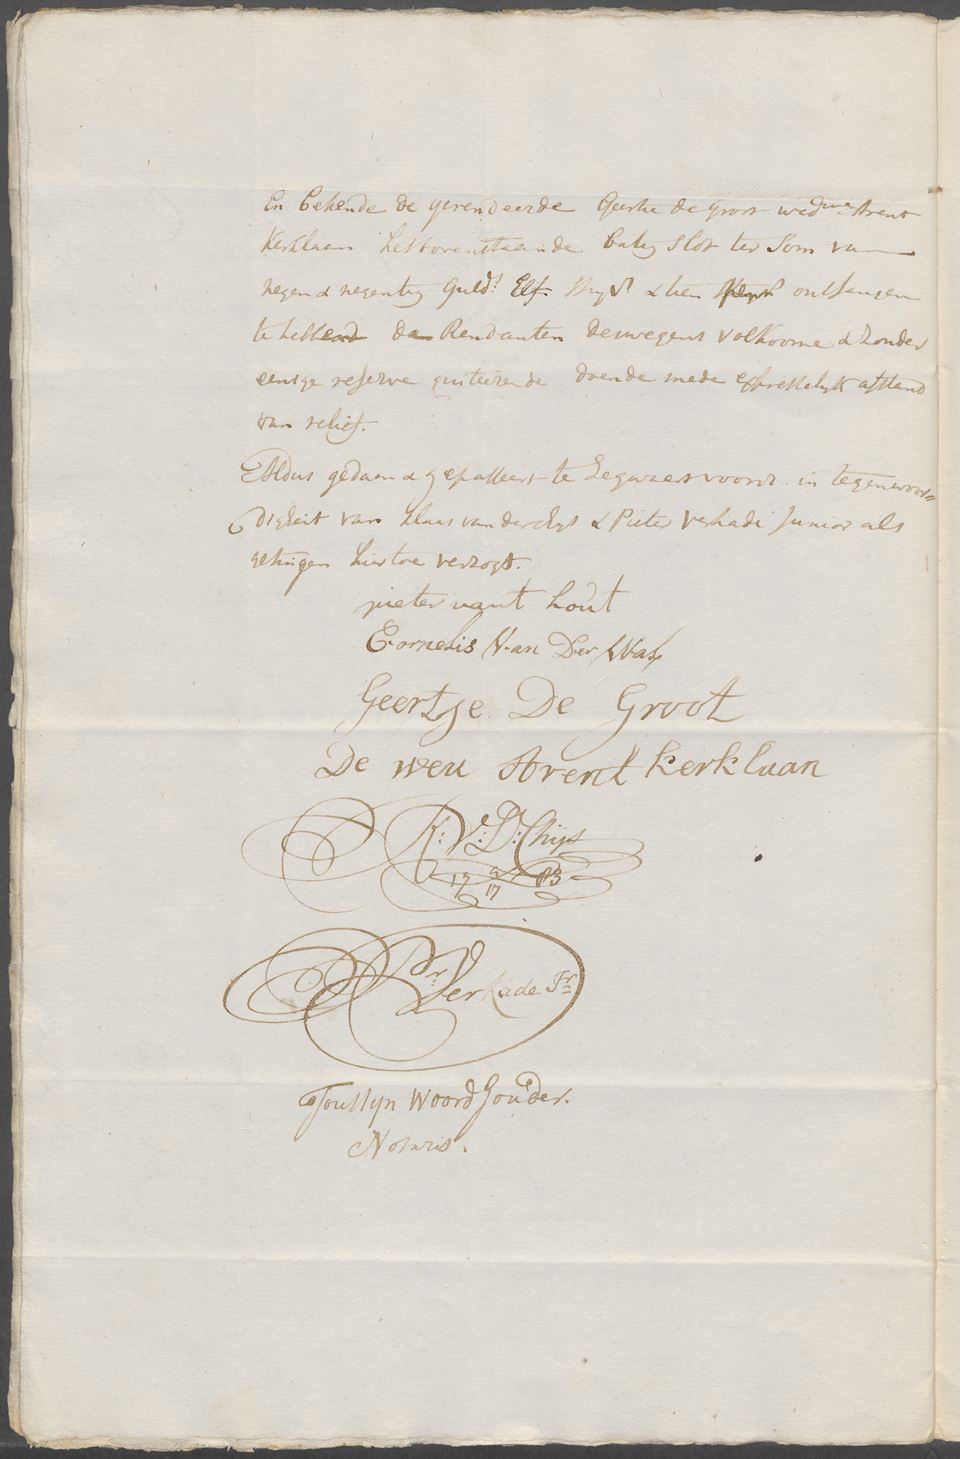 En bekende de gerendeerde Geertie de Groot wed.we Arent
Kerklaan het bovenstaande batig slot ter Som van
negen & negentig Guld.s Elf Stuyv.s & tien ontfangen
te hebbend den Rendanten deswegens volkoome & zonder
eenige reserve quiteerende doende mede afstand
van relief.
Aldus gedaan & gepasseert te Zegwaert voorn. in tegenwoor=
digheit van Klaas van der Chys & Pieter Verkade Junior als
getuigen hier toe verzogt.
pieter vant hout
Cornelis Van Der Wal
Geertje De Groot
De weu Arent kerklaan
K: V: D: Chijs
17 83
17
P.r Verkade J.r
Woord Gouder.
Notaris.